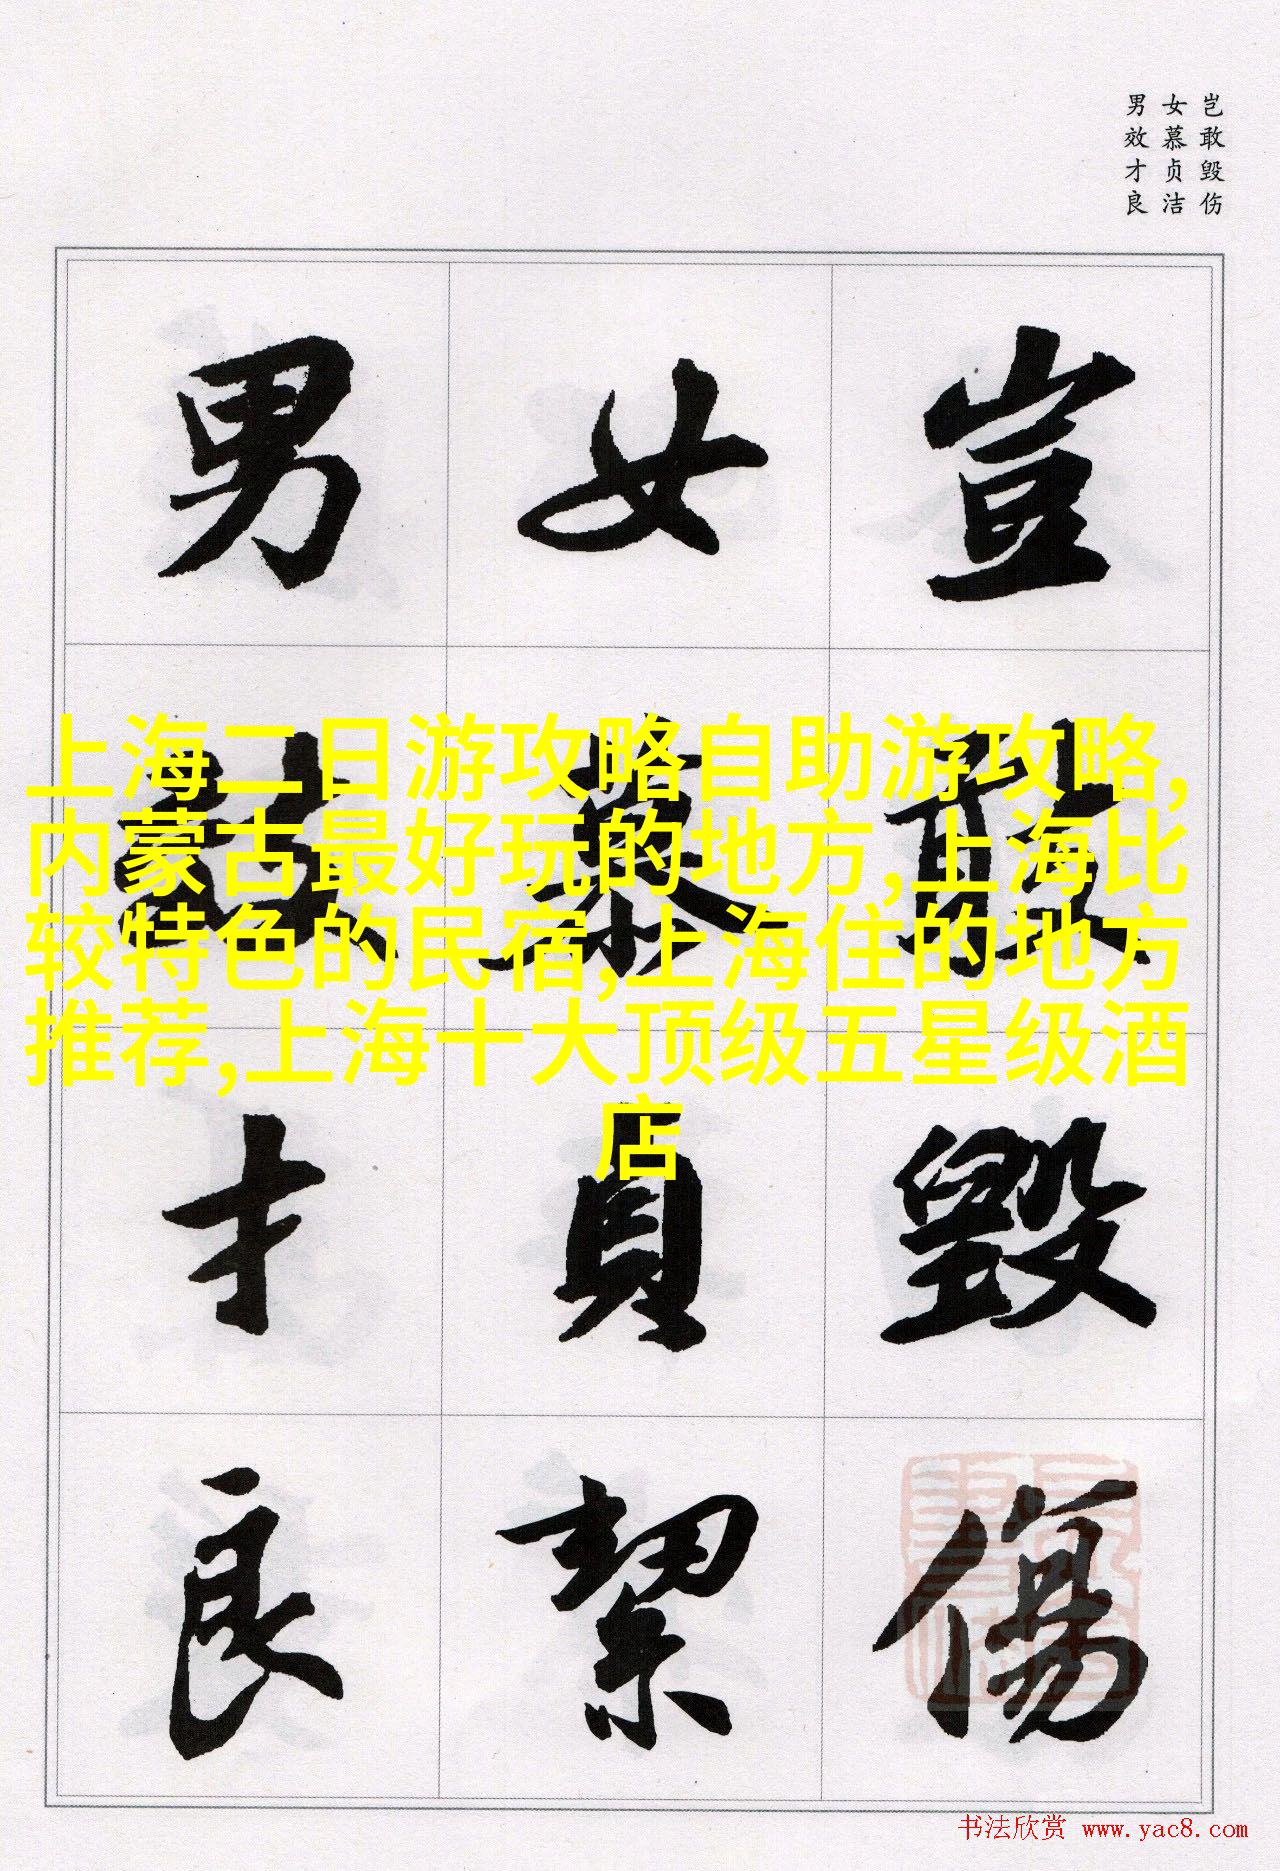 岂敢毁伤
女慕贞洁
男效才良
豈敢毀傷
女慕貞絜
男效才良
上海二日游攻略自助游攻略,
内蒙古最好玩的地方,上海比
较特色的民宿,上海住的地方
推荐,上海十大顶级五星级酒
店
书法欣赏 www.yac8.com